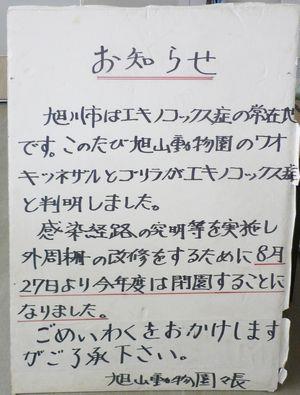 お知らせ
旭川市はエキノコックス症の常在地
です。このたび旭山動物園のワオ
キツネザルとゴリラがエキノコックス症
と判明しました。
感染経路の究明等を実施し
外周柵の改修をするために8月
27日より今年度は閉園することに
なりました。
ごめいわくをおかけします
がご了承下さい。
旭山動物園々長